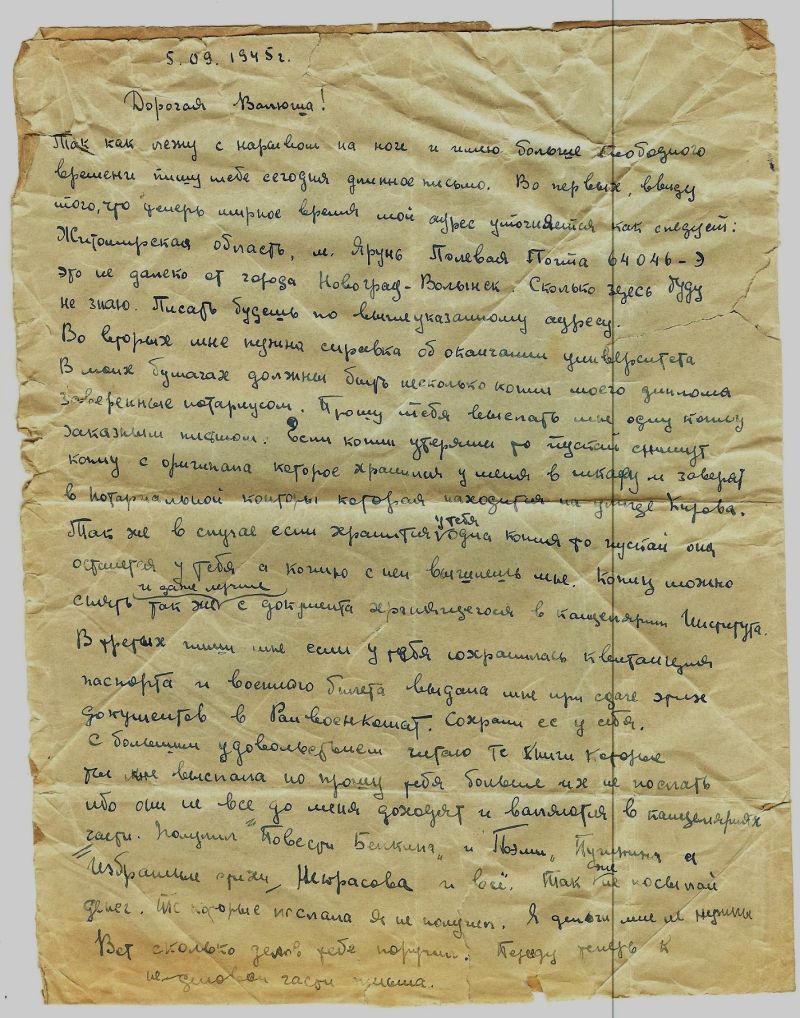 5.09.1945г.
Дорогая Валюша!
Так как лежу с нарывом на ноге и имею больше свободного
времени пишу тебе сегодня длинное письмо. Во первых, ввиду
того, что теперь мирное время мой адрес уточняется как следует:
Житомирская область, м. Ярунь Полевая Почта 64046-Э
это не далеко от города Новоград-Волынск. Сколько здесь буду
не знаю. Писать будешь по вышеуказанному адресу.
Во вторых мне нужна справка об окончании университета
В моих бумагах должны быть несколько копии моего диплома
заверенные нотариусом. Прошу тебя выслать мне одну копию
заказным письмом. Если копии утеряны то пускай снимут
копию с оригинала которое хранился у меня в шкафу и заверят
в нотариальной конторы которая находится на улице Кирова.
Так же в случае если хранится у тебя одна копия то пускай она
останется у тебя а копию с неи вышлешь мне. Копии можно
и даже лучше
снять так же с документа хранящегося в канцелярии Института.
В третьих пиши мне если у тебя сохранилась квитанция
паспорта и военного билета выдана мне при сдаче этих
документов в Райвоенкомат. Сохрани ее у себя.
С большим удовольствием читаю те книги которые
ты мне выслала но прошу тебя больше их не послать
ибо они не все до меня доходят и валяются в канцеляриях
части. Получил "Повести Белкина" и "Поэмы" Пушкина а
"Избранные стихи" Некрасова и всё. Так же не посылай
денег. Те которые послала я не получил. Я деньги мне не нужны
Вот сколько делов тебе поручил. Перейду теперь к
не деловой части письма.